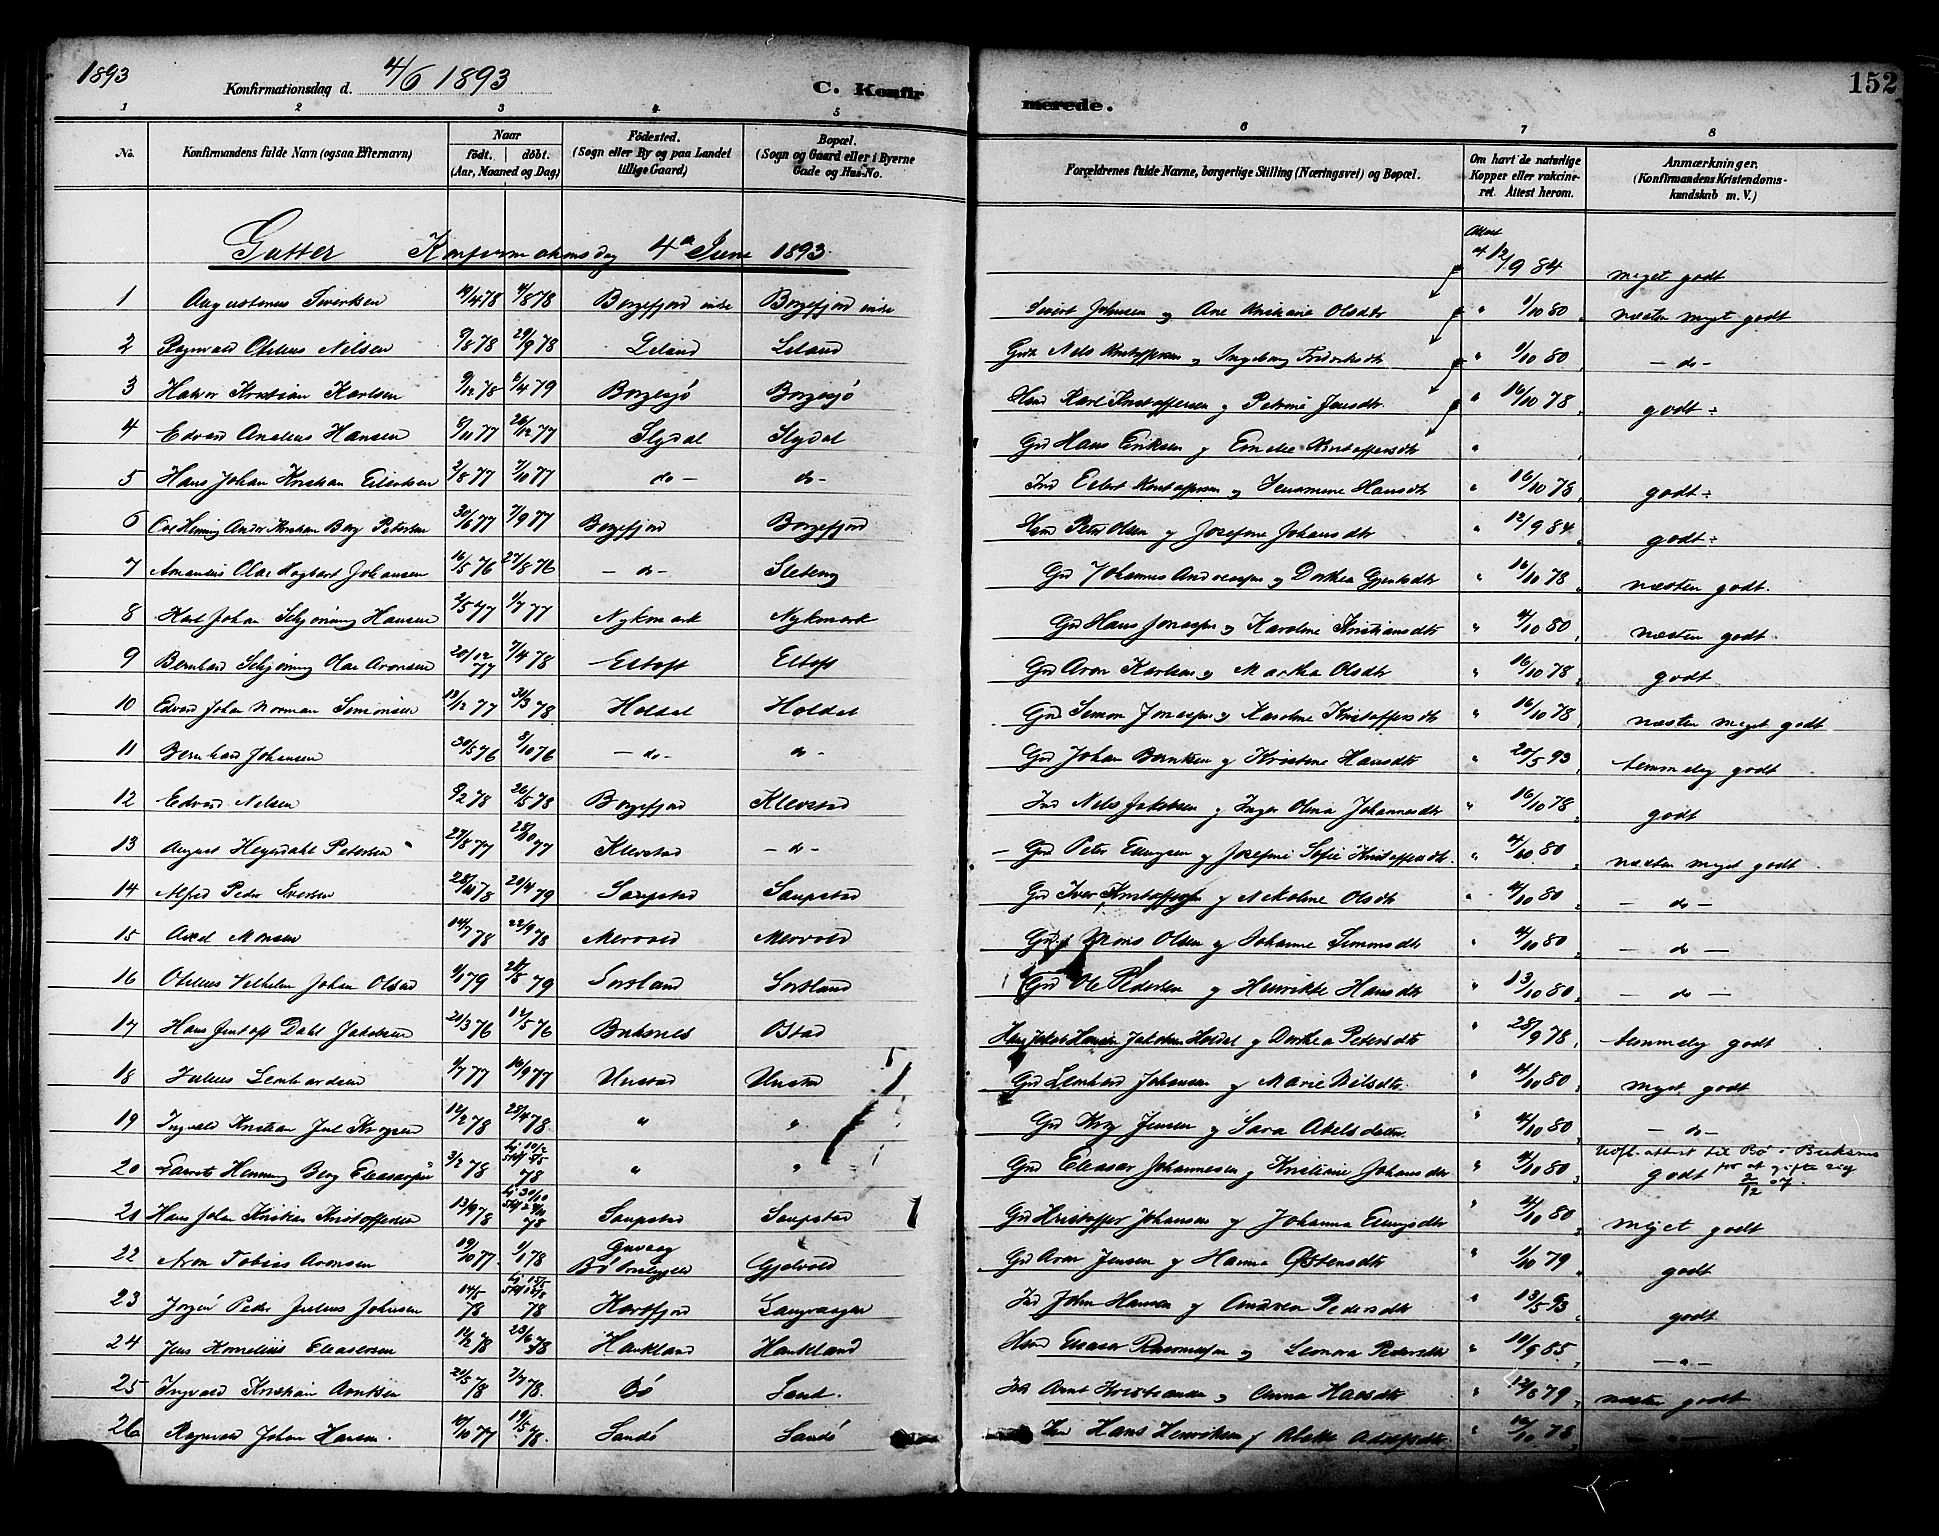 1893 Konfirmationsdag d. 4/6 1893 C. Konfirmerede. 152
1 2 3 4 5 6 7 8
No. Konfirmandens fulde Navn (ogsaa Efternavn) Naar födt. döbt. (Aar, Maaned og Dag) Födested. (Sogn eller By og paa Landet tillige Gaard) Bopæl. (Sogn og Gaard eller i Byerne Gade og Hus-No. Forældrenes fulde Navne, borgerlige Stilling (Næringsvei) og Bopæl. Om havt de naturlige Kopper eller vakcineret. Attest herom. Anmærkninger. (Konfirmandens Kristendomskundskab m. V.)
Gutter Konfirmationsdag 4de Juni 1893
Attest af 12/9 84 meget godt
1 Augustinus Sivertsen 78 4/8 78 Borgefjord indre Borgefjord indre Sivert Johnsen og Ane Kristine Olsdtr " 4/10 80 næsten meget godt
2 Ragnvald Otelius Nilsen 9/8 78 29/9 78 Leland Leland Nils Kristoffersen og Ingeborg Fredriksdtr " 4/10 80 - do -
3 Halvor Kristian Karlsen 9/12 78 6/4 79 Borgesjö Borgesjö Karl Kristoffersen og Petrine Jensdtr " 16/10 78 godt
4 Edvard Anelius Hansen 8/11 77 26/12 77 Slydal Slydal Gd Hans Eriksen og Emelie Kristoffersdtr "
5 Hans Johan Kristian Eilertsen 2/8 77 7/10 77 do - do - Ind Eilert Kristoffersen og Hansdtr " 16/10 78 godt
6 Ole Henning Andr Kristian Berg Petersen 30/6 77 7/9 77 Borgefjord Borgefjord Peter Olsen og Josefine Johansdtr " 12/9 84 godt
7 Amandus Olai Hagbart Johansen 16/5 76 27/8 76 - do - Steteng Gd Johannes Andreassen og Dorthea Gjertsdtr " 16/10 78 næsten godt.
8 Karl Johan Schjöning Hansen 2/5 77 1/7 77 Nykmark Nykmark Gd Hans Jonassen og Karoline Kristiansdtr " 4/10 80 næsten godt
9 Bernhard Schjöning Olai Aronsen 20/12 77 7/4 78 Eltoft Eltoft Gd Aron Karlsen og Martha Olsdtr " 16/10 78 godt
10 Edvard Johan Norman Simonsen 13/12 77 31/3 78 Holdal Holdal Gd Simon Jonassen og Karoline Kristoffersdtr " 16/10 78 næsten meget godt
11 Bernhard Johansen 30/5 76 8/10 76 - do - do - Gd Johan Berntsen og Kristine Hansdtr " 20/5 93 temmelig godt
12 Edvard Nilsen 9/2 78 26/5 78 Borgefjord Klevstad Ind Nils Jakobsen og Inger Olina Johannesdtr " 16/10 78 godt
13 August Heyerdahl Petersen 27/8 77 28/10 77 Klevstad - do - Gd Peter Ellingsen og Josefine Sofie Kristoffersdtr. " 4/10 80 næsten meget godt
14 Alfred Peder Iversen 78 20/4 79 Saupstad Saupstad Gd Iver Kristoffersen og Nekoline Olsdtr " 4/10 80 - do -
15 Axel Monsen 14/7 78 22/9 78 Mervold Mervold Gd Mons Olsen og Johanne Simonsdtr " 4/10 80 - do -
16 Otelius Vilhelm Johan Olsen 1/1 79 79 Sortland Sortland Gd Ole Pedersen og Henrikke Hansdtr " 13/10 80 - do -
17 Hans Jentoft Dahl Jakobsen 21/3 76 12/5 76 Buksnes Ostad Jakobsen Holdal og Dorthea Petersdtr " 28/9 78 temmelig godt
18 Julius Lenhardsen 1/7 77 77 Unstad Unstad Gd Lenhard Johansen og Marie Nilsdtr. " 4/10 80 meget godt
19 Ingvald Kristian Juul Krogsen 12/2 78 28/4 78 " " Gd Krog Jensen og Sara Abelsdatter " 4/10 80 - do -
20 Lauritz Henning Berg Eleasarsen 3/2 78 78 " " Gd Eleasar Johannesen og Kristiane Johansdtr " 4/10 80 godt Udfl. attest til Bö i Buksnes for at gifte sig 2/12 07.
21 Hans Johan Kristian Kristoffersen 13/9 78 78 Saupstad Saupstad Gd Kristoffer Johansen og Johanna Ellingsdtr " 4/10 80 meget godt
22 Aron Tobias Aronsen 19/10 77 1/1 78 Guvaag Bö Gjelvold Gd Aron Jensen og Hanna Östensdtr " 1/10 79 godt
23 Jörgen Peder Julius Johnsen 14/5 78 78 Hartfjord Langvasgen Ind John Hansen og Andrea Pedersdtr " 13/5 93 godt
24 Jens Kornelius Eleasersen 12/2 78 23/6 78 Haukland Haukland Eleasar Rasmussen og Leonora Pedersdtr " 10/9 85 - " -
25 Ingvald Kristian Arntsen 21/5 78 7/7 78 Bö Sand. Ind Arnt Kristiansen og Anna Hansdtr " 12/6 79 næsten godt
26 Ragnvald Johan Hansen. 10/10 77 19/5 78 Sandö Sandö Ind Hans Henriksen og Adolfsdtr " 78 - " -